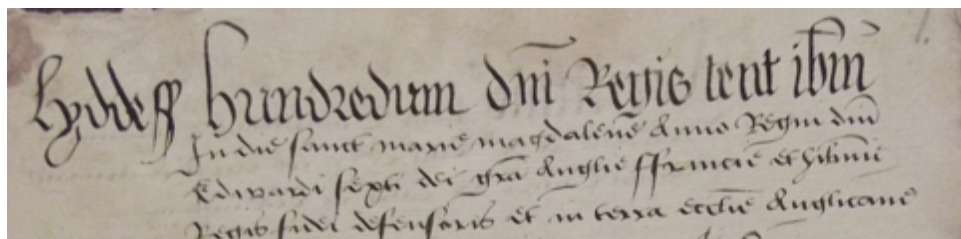 hyddeff hundredum dni Regis tent ibm
In die sanct marie magdalene Anno Regni dni
Edwardi sexti dei gra Anglie ffrancie et hibnie
Regis fidei defensoris et in terra ecclie Anglicane